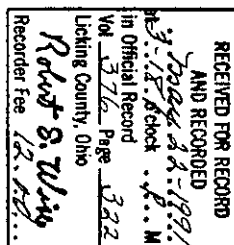 RECEIVED FOR RECORD
AND RECORDED
May 22-1991
at 3:18 o'clock P. M
in Official Record
Vol 376 Page 322
Licking County, Ohio
Robert S. Wise
Recorder Fee 12.00